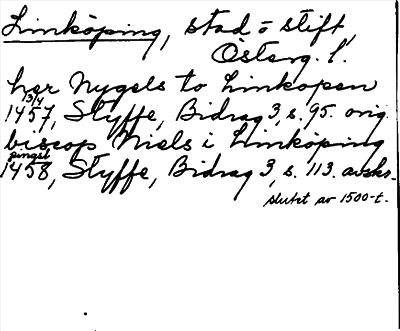 Linköping, stad o stift,
Österg. l.
her Nygels to Linkopen
13/4
1457, Styffe, Bidrag 3, s. 95. orig.
biscop Niels i Linköping
pingst
1458, Styffe, Bidrag 3, s. 113. avskr.
slutet av 1500-t.